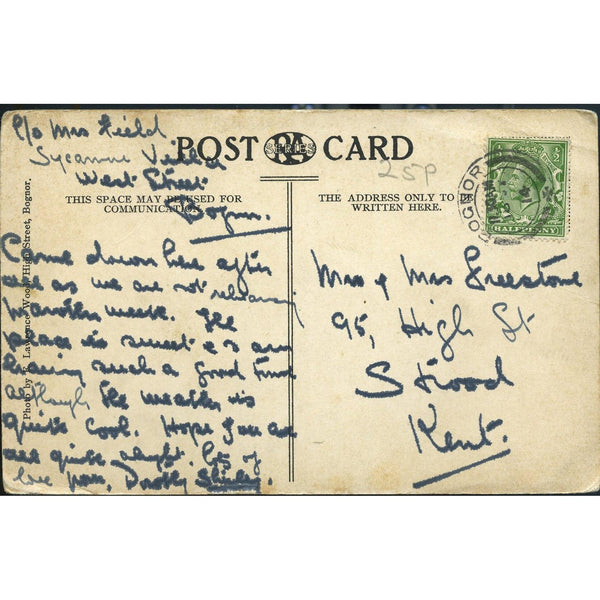 c/o Mrs Field
Sycamore Villa
West Street
Bognor.
POST CARD
RA
SERIES
25p
THIS SPACE MAY BE USED FOR
COMMUNICATION.
THE ADDRESS ONLY TO BE
WRITTEN HERE.
BOGNOR
HALFPENNY
Come down here after
all as we are not
another week. The
place is sweet & are
having such a good time
although the weather is
quite cool. Hope you are
all quite alright. lots of
love from, Shirley.
Mrs & Mrs Freestone
95, High St
Strood
Kent.
Photo by F. Lawrence Wood, High Street, Bognor.